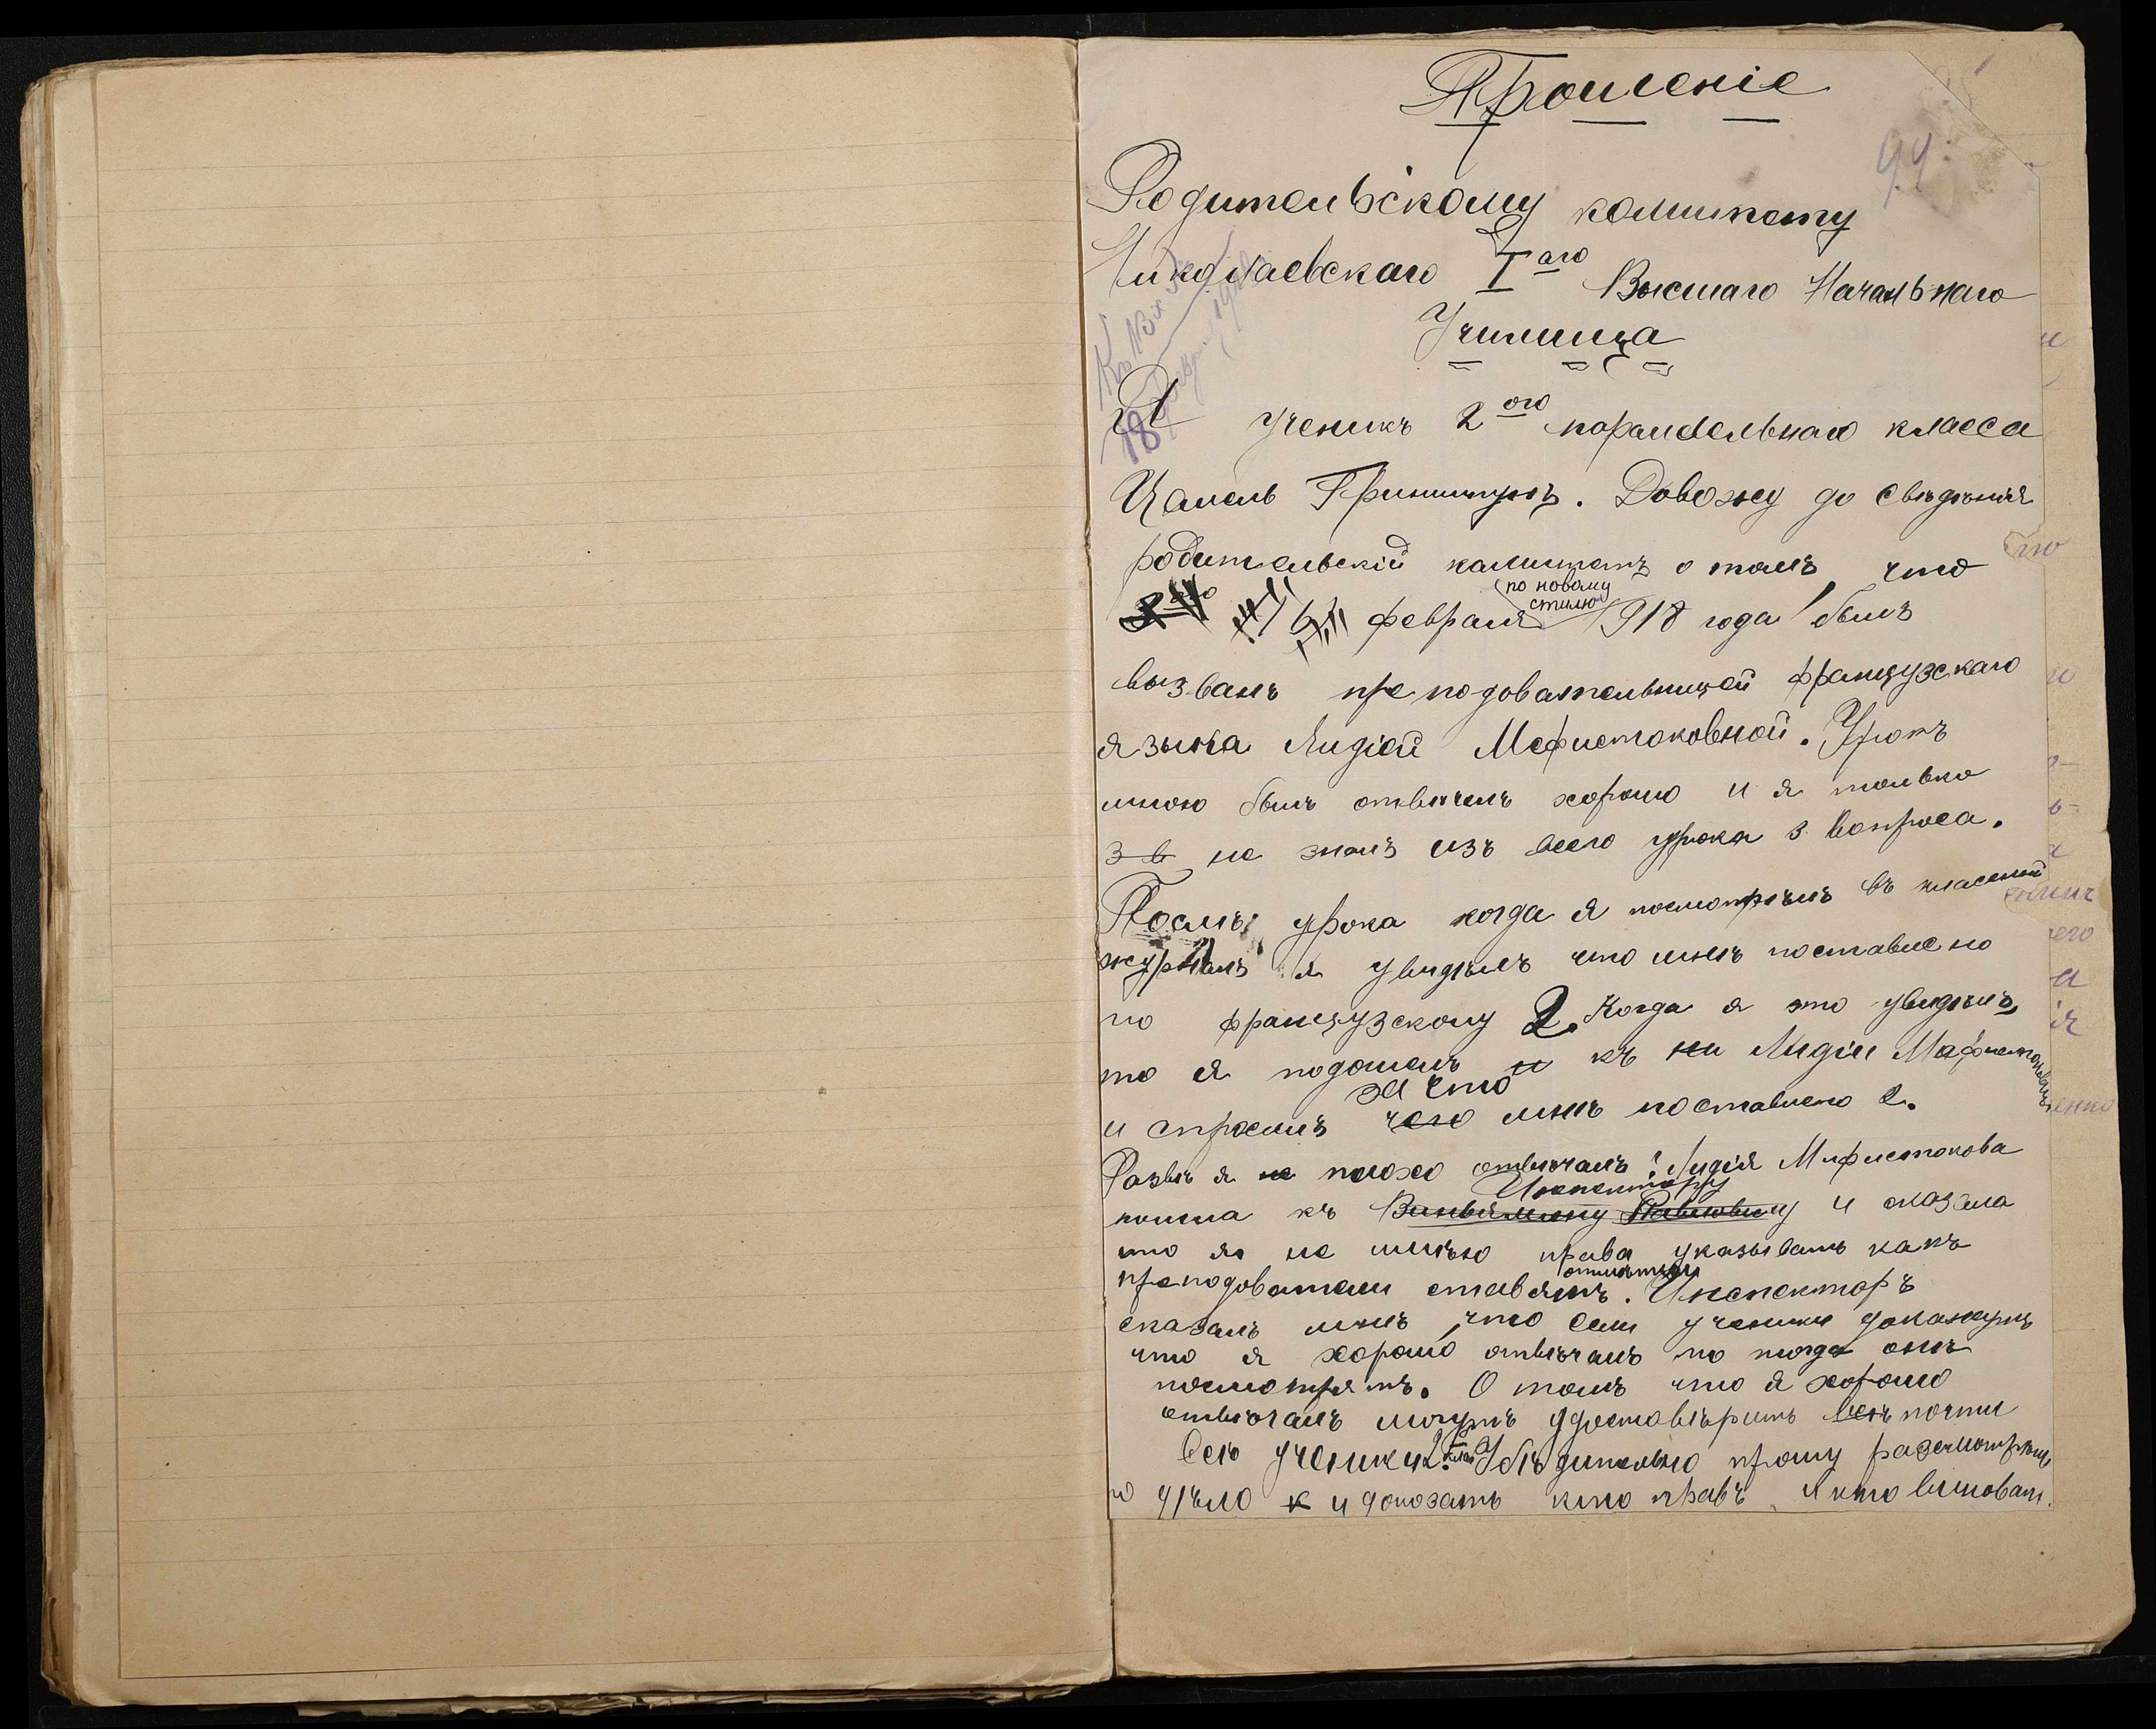 Прошеніе
94
Родительскому комитету
Николаевскаго I аго Высшаго Начальнаго
Училища
Я ученикъ 2 ого паралельнаго класса
Цалель Гриншпунъ. Довожу до свѣдѣнія
родительскій камитетъ о томъ, что
16 февраля (по новому стилю) 1918 года былъ
вызванъ преподовательницей французскаго
языка Лидіей Мефистоковной. Урокъ
мною былъ отвѣченъ хорошо и я только
3 в не зналъ изъ всего урока 3 вопроса.
Послѣ урока когда я посмотрѣлъ въ класный
журналъ я увидѣлъ что мнѣ поставлено
по французскому 2. Когда я это увидѣлъ
то я подошелъ и къ ни Лидіи
и спросилъ чего за что мнѣ поставлено 2.
Развѣ я не плохо отвѣчалъ? Лидія Мифистокова
пошла къ Веньямину Павловичу Инспектору и сказала
что я не имѣю права указывать какъ
преподователи ставятъ отмѣтки. Инспекторъ
сказалъ мнѣ, что если ученики докажутъ
что я хорошо отвѣчалъ то тогда онъ
посмотритъ. О томъ что я хорошо
отвѣчалъ могутъ удостовѣрить всѣ почти
всѣ ученики 2. Убѣдительно прошу разсмотрѣть
дѣло к и доказать кто правъ и кто виноват.